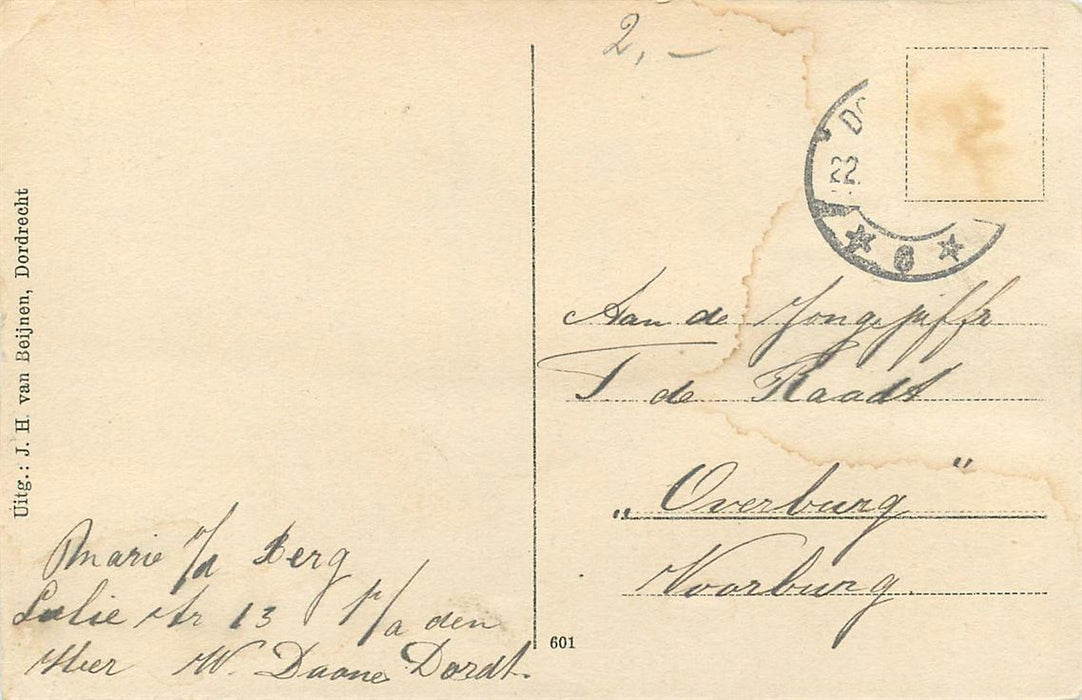 2,—
DO
22
6
Uitg.: J. H. van Beijnen, Dordrecht
Aan de Jongejuffr
T de Raadt
„Overburg"
Voorburg.
Marie v/d Berg
Lelie str 13 p/a den
Heer W. Daane Dordt.
601